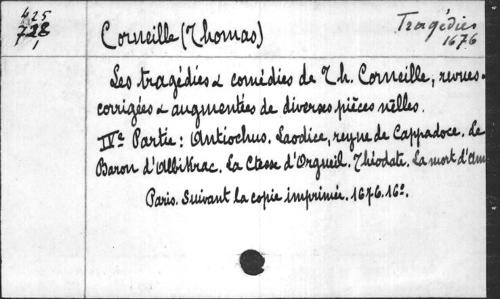 425
728
1
Corneille (Thomas)
Tragédies
1676
Les tragédies & comédies de Th. Corneille, revues
corrigées & augmentées de diverses pièces nelles.
IVe Partie : Antiochus. Laodice, reyne de Cappadoce. Le
Baron d'Albikrac. La Ctesse d'Orgueil. Théodate. La mort d'Ann
Paris. Suivant la copie imprimée. 1676. 16º.